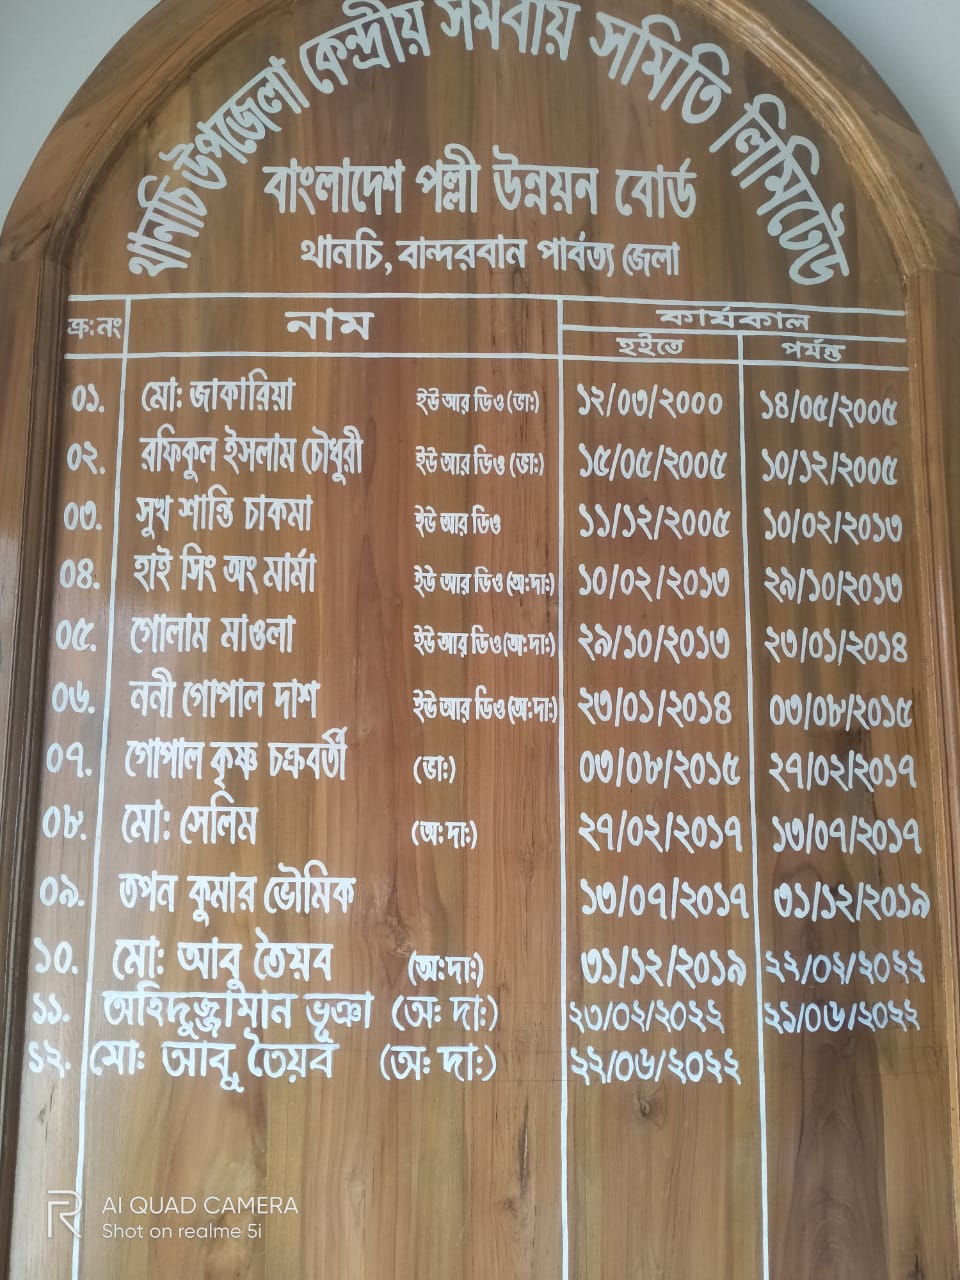 থানচি উপজেলা কেন্দ্রীয় সমবায় সমিতি লিমিটেড
বাংলাদেশ পল্লী উন্নয়ন বোর্ড
থানচি, বান্দরবান পার্বত্য জেলা
ক্র:নং নাম কার্যকাল
হইতে পর্যন্ত
০১. মো: জাকারিয়া ইউ আর ডিও (ভা:) ১২/০৩/২০০০ ১৪/০৫/২০০৫
০২. রফিকুল ইসলাম চৌধুরী ইউ আর ডিও (ভা:) ১৫/০৫/২০০৫ ১০/১২/২০০৫
০৩. সুখ শান্তি চাকমা ইউ আর ডিও ১১/১২/২০০৫ ১০/০২/২০১৩
০৪. হাই সিং অং মার্মা ইউ আর ডিও (অ:দা:) ১০/০২/২০১৩ ২৯/১০/২০১৩
০৫. গোলাম মাওলা ইউ আর ডিও (অ:দা:) ২৯/১০/২০১৩ ২৩/০১/২০১৪
০৬. ননী গোপাল দাশ ইউ আর ডিও (অ:দা:) ২৩/০১/২০১৪ ০৩/০৮/২০১৫
০৭. গোপাল কৃষ্ণ চক্রবর্তী (ভা:) ০৩/০৮/২০১৫ ২৭/০২/২০১৭
০৮. মো: সেলিম (অ: দা:) ২৭/০২/২০১৭ ১৩/০৭/২০১৭
০৯. তপন কুমার ভৌমিক ১৩/০৭/২০১৭ ৩১/১২/২০১৯
১০. মো: আবু তৈয়ব (অ:দা:) ৩১/১২/২০১৯ ২২/০২/২০২২
১১. অহিদুজ্জামান ভূঞা (অ: দা:) ২৩/০২/২০২২ ২১/০৬/২০২২
১২. মো: আবু তৈয়ব (অ: দা:) ২২/০৬/২০২২
AI QUAD CAMERA
Shot on realme 5i